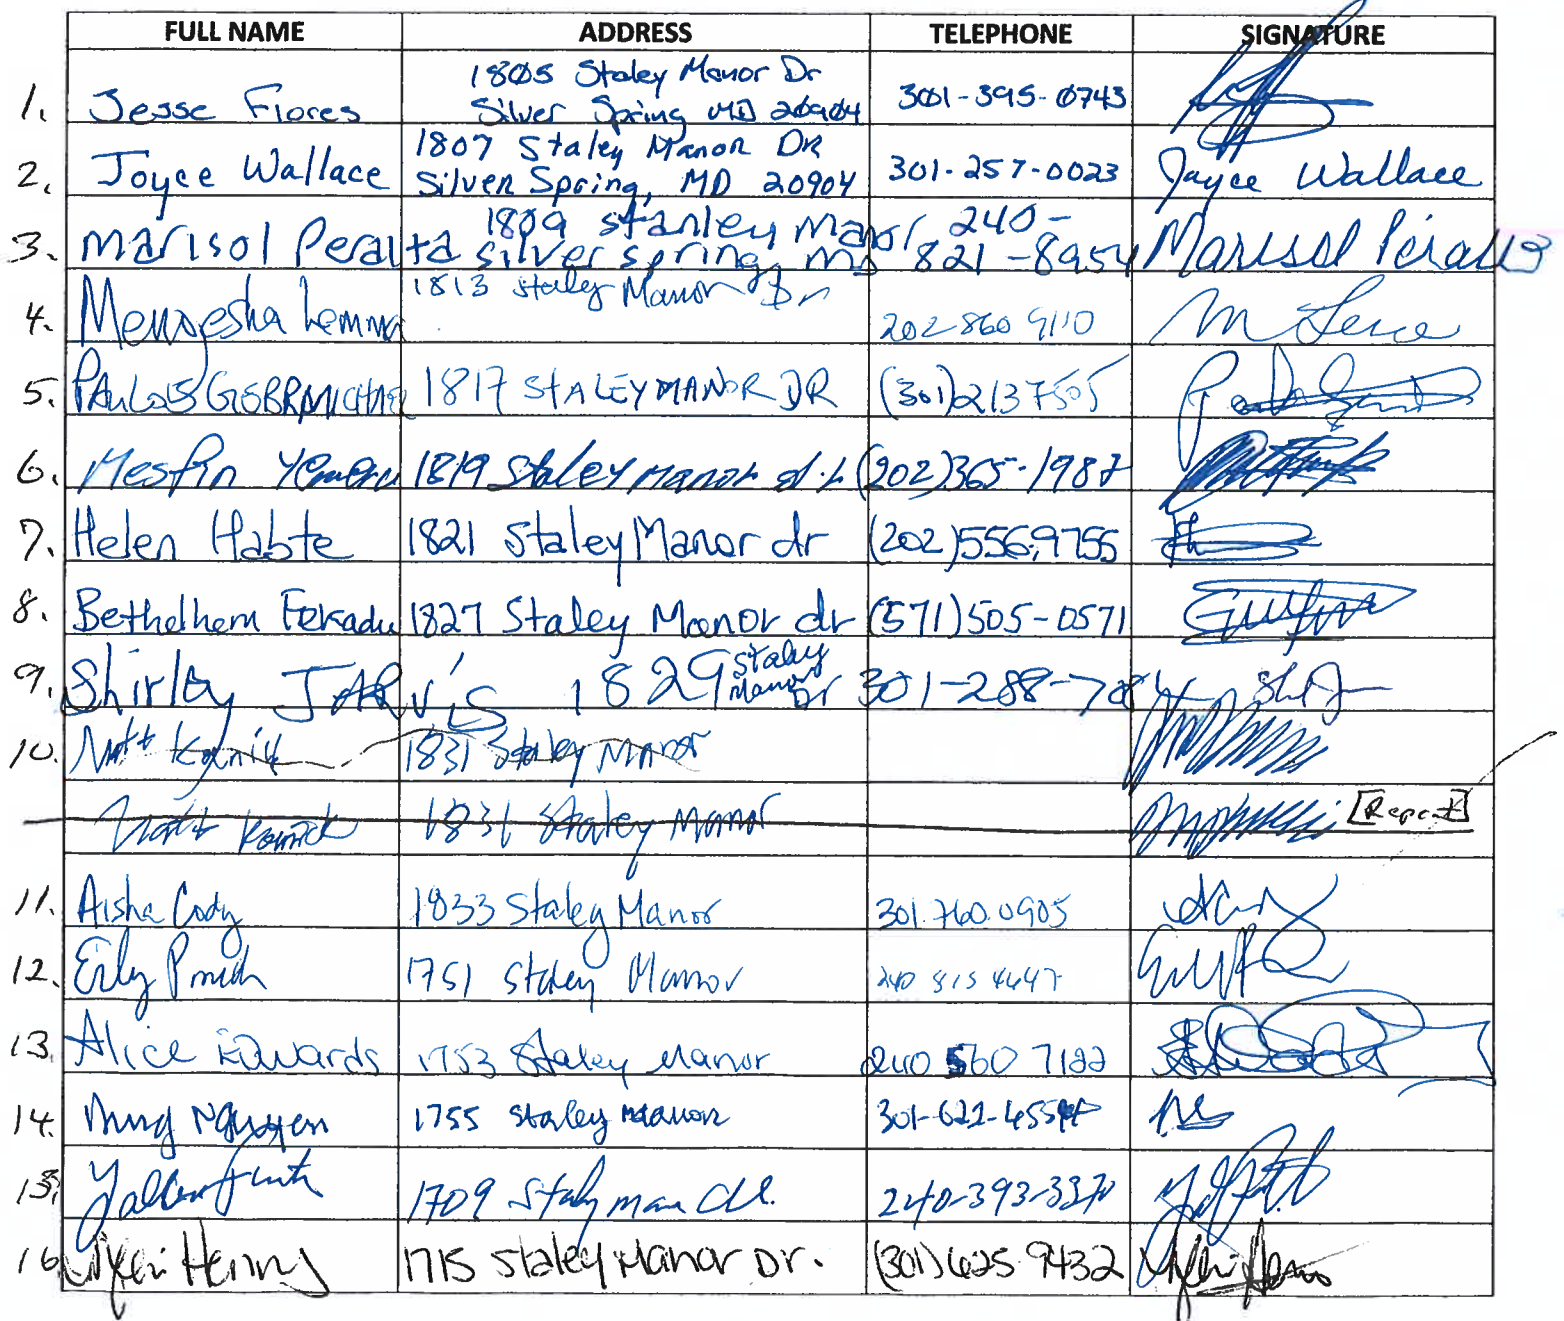 FULL NAME ADDRESS TELEPHONE SIGNATURE
1. Jesse Flores 1805 Staley Manor Dr
Silver Spring MD 20904 301-395-0743
2. Joyce Wallace 1807 Staley Manor DR
Silver Spring, MD 20904 301-257-0023 Joyce Wallace
3. Marisol Peralta 1809 stanley Manor
silver spring, MD 240-
821-8954 Marisol Peralta
4. Mengesha Lemma 1813 Staley Manor Dr 202 860 9110
5. PAULOS GEBRMICHAE 1817 STALEY MANOR DR (301)213 7505
6. Mesfin 1819 Staley Manor d.r (202)365-1987
7. Helen Habte 1821 Staley Manor dr (202)556,9755
8. Bethelhem Fekadu 1827 Staley Manor dr (571)505-0571
9. Shirley JARvis 1829 Staley
Manor
Dr 301-288-78
10. Matt 1831 Staley Manor
Matt 1831 Staley Manor [Repeat]
11. Aisha Cody 1833 Staley Manor 301.760.0905
12. 1751 Staley Manor 240 815 4647
13. Alice Edwards 1753 Staley Manor 240 560 7122
14. Nguyen 1755 Staley Manor 301-622-4554
15. 1709 Staly 240-393-3370
16. Henry 1715 Staley Manor Dr. (301)625 9432